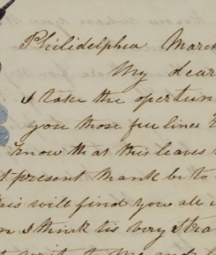 Philidelphia March
My dear
I take the opertun
you those few lines
know that this leaves
present thank be to
his will find you all
I think its very Stra